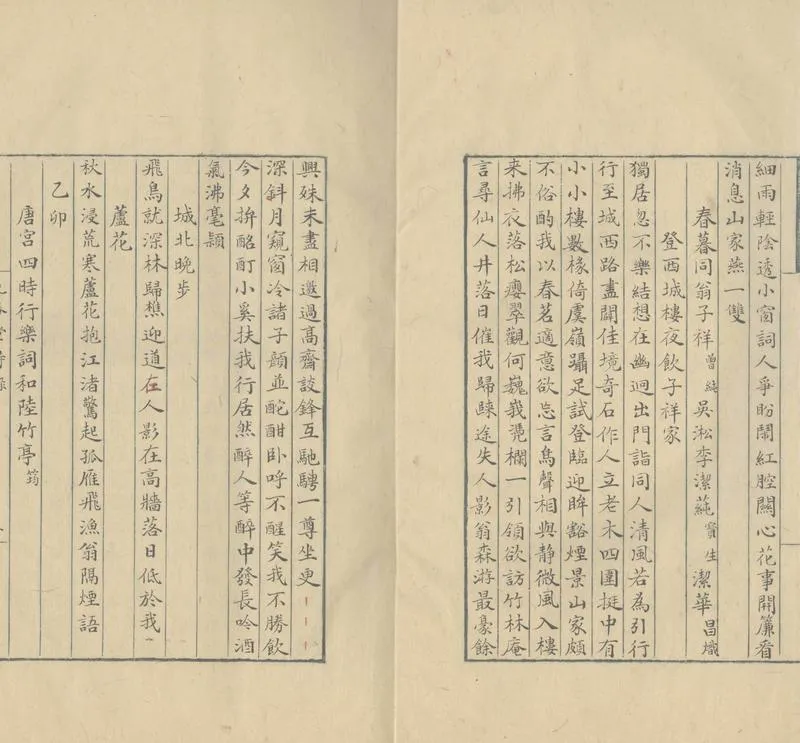 細雨輕陰透小窗詞人爭盼鬧紅腔關心花事開簾看
消息山家燕一雙
春暮同翁子祥曾純吳淞李潔蒓寶生潔華昌熾
登西城樓夜飲子祥家
獨居忽不樂結想在幽迥出門詣同人清風若為引行
行至城西路盡闢佳境奇石作人立老木四圍挺中有
小小樓數椽倚虞嶺躡足試登臨迎眸豁煙景山家頗
不俗酌我以春茗適意欲忘言鳥聲相與靜微風入樓
来拂衣落松癭翠觀何巍峩凭欄一引領欲訪竹林庵
言尋仙人井落日催我歸睞途失人影翁森游最豪餘
興殊未盡相邀過高齋談鋒互馳騁一尊坐更
深斜月窺窗冷諸子顏並酡酣卧呼不醒笑我不勝飲
今夕拚酩酊小奚扶我行居然醉人等醉中發長吟酒
氣沸毫穎
城北晚步
飛鳥就深林歸樵迎道左人影在高牆落日低於我
蘆花
秋水浸荒寒蘆花抱江渚驚起孤雁飛漁翁隔煙語
乙卯
唐宮四時行樂詞和陸竹亭筠